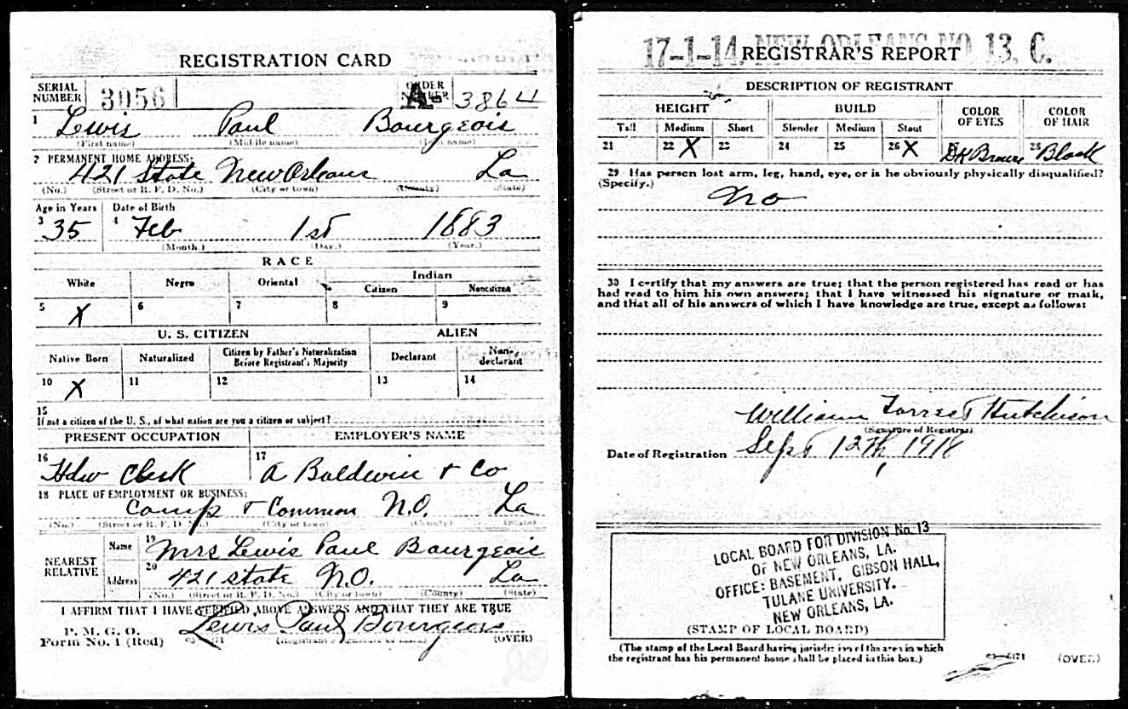 REGISTRATION CARD
SERIAL NUMBER 3056 ORDER NUMBER A 3864
1 Lewis Paul Bourgeois
(First name) (Middle name) (Last name)
2 PERMANENT HOME ADDRESS:
421 State New Orleans La
(No.) (Street or R. F. D. No.) (City or town) (County) (State)
Age in Years Date of Birth
3 35 4 Feb 1st 1883
(Month.) (Day.) (Year.)
RACE
White Negro Oriental Indian
Citizen Noncitizen
5 X 6 7 8 9
U. S. CITIZEN ALIEN
Native Born Naturalized Citizen by Father's Naturalization Before Registrant's Majority Declarant Non-declarant
10 X 11 12 13 14
15
If not a citizen of the U. S., of what nation are you a citizen or subject?
PRESENT OCCUPATION EMPLOYER'S NAME
16 Hdw Clerk 17 A Baldwin & Co
18 PLACE OF EMPLOYMENT OR BUSINESS:
Camp & Common N.O. La
(No.) (Street or R. F. D. No.) (City or town) (County) (State)
NEAREST RELATIVE Name 19 Mrs Lewis Paul Bourgeois
Address 20 421 State N.O. La
(No.) (Street or R. F. D. No.) (City or town) (County) (State)
I AFFIRM THAT I HAVE VERIFIED ABOVE ANSWERS AND THAT THEY ARE TRUE
P. M. G. O.
Form No. 1 (Red) Lewis Paul Bourgeois (OVER)
17-1-14. NEW ORLEANS NO. 13. C.
REGISTRAR'S REPORT
DESCRIPTION OF REGISTRANT
HEIGHT BUILD COLOR OF EYES COLOR OF HAIR
Tall Medium Short Slender Medium Stout
21 22 X 23 24 25 26 X Dk Brown 28 Black
29 Has person lost arm, leg, hand, eye, or is he obviously physically disqualified?
(Specify.) No
30 I certify that my answers are true; that the person registered has read or has
had read to him his own answers; that I have witnessed his signature or mark,
and that all of his answers of which I have knowledge are true, except as follows:
William Forrest Hutchison
(Signature of Registrar)
Date of Registration Sept 12th, 1918
LOCAL BOARD FOR DIVISION No. 13
OF NEW ORLEANS, LA.
OFFICE: BASEMENT, GIBSON HALL,
TULANE UNIVERSITY.
NEW ORLEANS, LA.
(STAMP OF LOCAL BOARD)
(The stamp of the Local Board having jurisdiction of the area in which
the registrant has his permanent home shall be placed in this box.)
03—6171 (OVER)